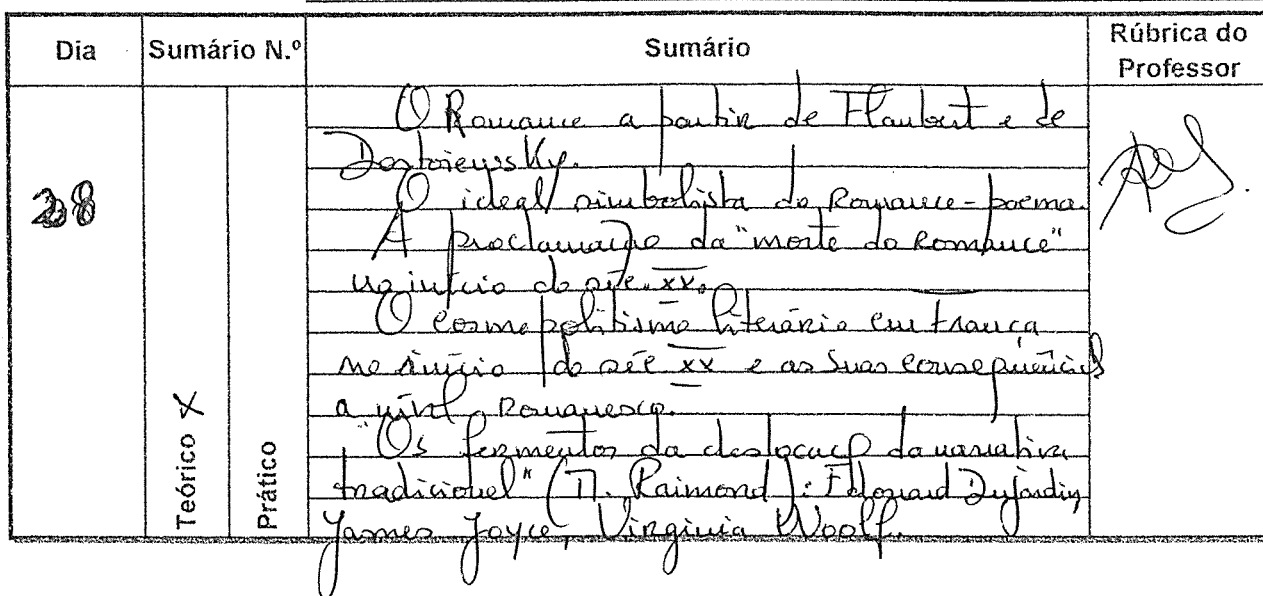 Dia Sumário N.º Sumário Rúbrica do Professor
O Romance a partir de Flaubert e de
Dostoiewsky.
28
O ideal simbolista do Romance-poema.
A proclamação da "morte do Romance"
no início do séc. XX.
O cosmopolitismo literário em França
no início do séc XX e as suas consequências
a nível Romanesco.
"Os fermentos da deslocação da narrativa
tradicional" (M. Raimond): Edouard Dujardin,
James Joyce, Virginia Woolf.
Teórico X
Prático